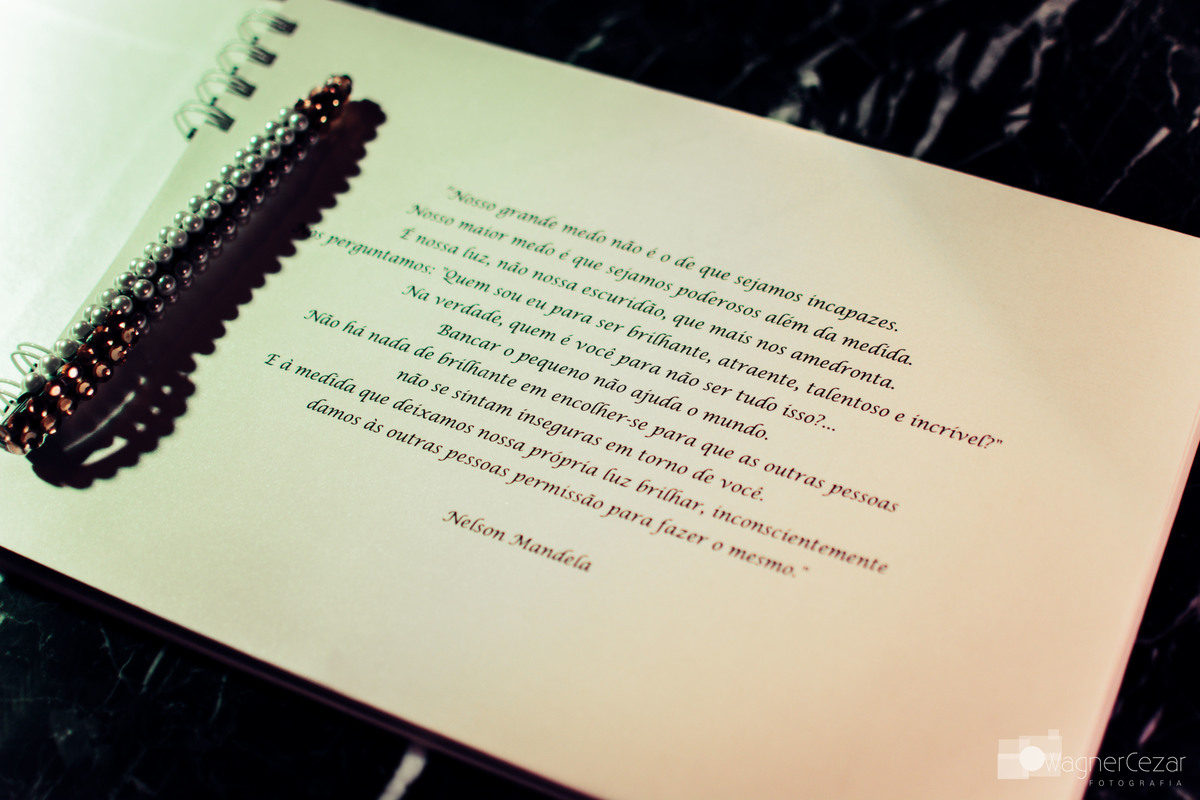 "Nosso grande medo não é o de que sejamos incapazes.
Nosso maior medo é que sejamos poderosos além da medida.
É nossa luz, não nossa escuridão, que mais nos amedronta.
perguntamos: "Quem sou eu para ser brilhante, atraente, talentoso e incrível?"
Na verdade, quem é você para não ser tudo isso?...
Bancar o pequeno não ajuda o mundo.
Não há nada de brilhante em encolher-se para que as outras pessoas
não se sintam inseguras em torno de você.
E à medida que deixamos nossa própria luz brilhar, inconscientemente
damos às outras pessoas permissão para fazer o mesmo."
Nelson Mandela
WagnerCezar
FOTOGRAFIA